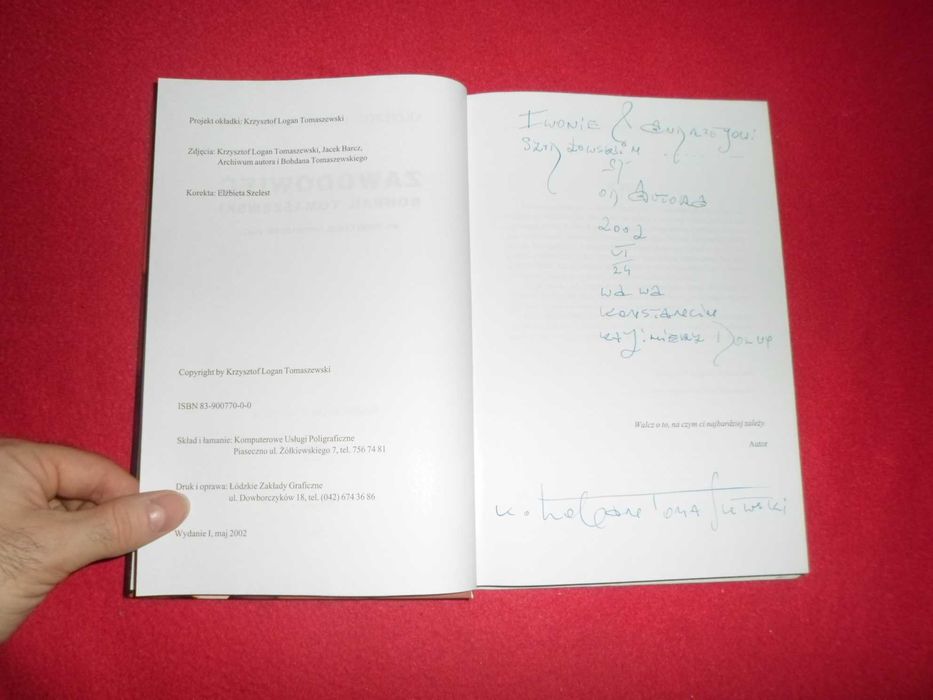 Projekt okładki: Krzysztof Logan Tomaszewski
Zdjęcia: Krzysztof Logan Tomaszewski, Jacek Barcz,
Archiwum autora i Bohdana Tomaszewskiego
Korekta: Elżbieta Szelest
Copyright by Krzysztof Logan Tomaszewski
ISBN 83-900770-0-0
Skład i łamanie: Komputerowe Usługi Poligraficzne
Piaseczno ul. Żółkiewskiego 7, tel. 756 74 81
Druk i oprawa: Łódzkie Zakłady Graficzne
ul. Dowborczyków 18, tel. (042) 674 36 86
Wydanie I, maj 2002
IWONIE &
OD AUTORA
2002
VI
24
WA WA
KONSTANCIN
DOLNY
Walcz o to, na czym ci najbardziej zależy.
Autor
K. Logan Tomaszewski